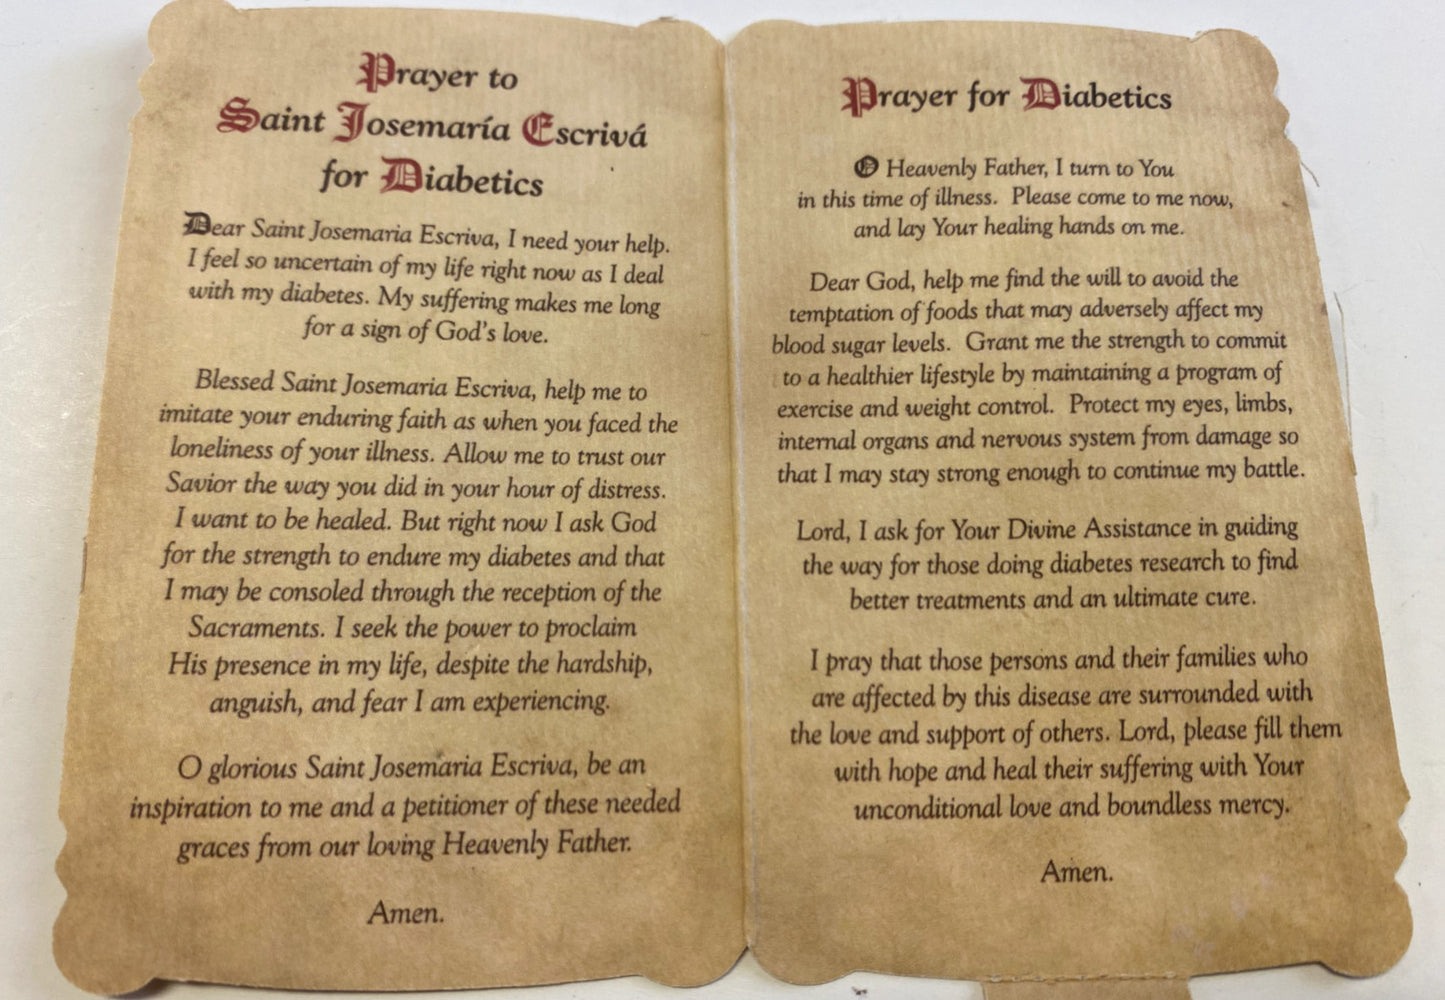 Prayer to
Saint Josemaría Escrivá
for Diabetics
Dear Saint Josemaria Escriva, I need your help.
I feel so uncertain of my life right now as I deal
with my diabetes. My suffering makes me long
for a sign of God's love.
Blessed Saint Josemaria Escriva, help me to
imitate your enduring faith as when you faced the
loneliness of your illness. Allow me to trust our
Savior the way you did in your hour of distress.
I want to be healed. But right now I ask God
for the strength to endure my diabetes and that
I may be consoled through the reception of the
Sacraments. I seek the power to proclaim
His presence in my life, despite the hardship,
anguish, and fear I am experiencing.
O glorious Saint Josemaria Escriva, be an
inspiration to me and a petitioner of these needed
graces from our loving Heavenly Father.
Amen.
Prayer for Diabetics
O Heavenly Father, I turn to You
in this time of illness. Please come to me now,
and lay Your healing hands on me.
Dear God, help me find the will to avoid the
temptation of foods that may adversely affect my
blood sugar levels. Grant me the strength to commit
to a healthier lifestyle by maintaining a program of
exercise and weight control. Protect my eyes, limbs,
internal organs and nervous system from damage so
that I may stay strong enough to continue my battle.
Lord, I ask for Your Divine Assistance in guiding
the way for those doing diabetes research to find
better treatments and an ultimate cure.
I pray that those persons and their families who
are affected by this disease are surrounded with
the love and support of others. Lord, please fill them
with hope and heal their suffering with Your
unconditional love and boundless mercy.
Amen.